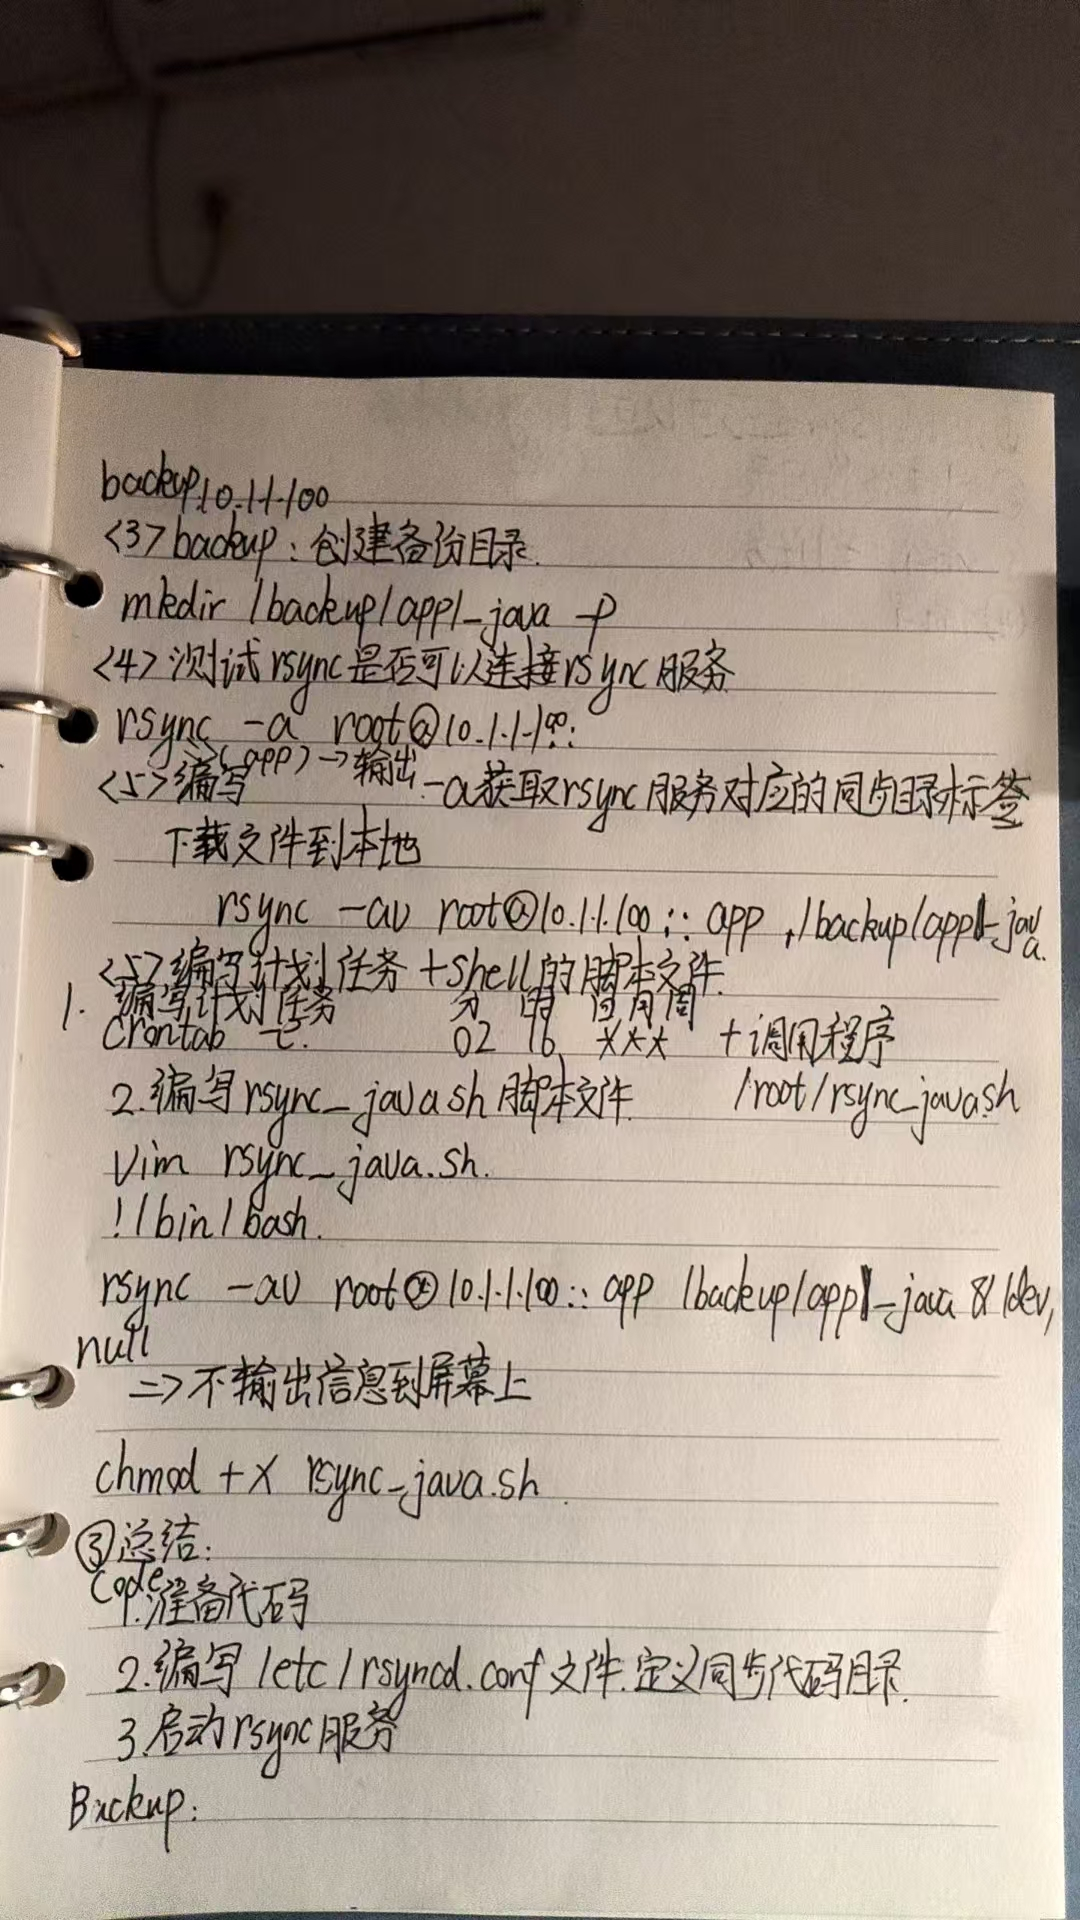 backup 10.1.1.100
<3> backup：创建备份目录.
mkdir /backup/app1_java -p
<4> 测试rsync是否可以连接rsync服务
rsync -a root@10.1.1.100::
=>(app) → 输出 -a获取rsync服务对应的同步目录标签
<5>编写
下载文件到本地
rsync -av root@10.1.1.100::app /backup/app1_java.
<5>编写计划任务+shell的脚本文件.
1. 编写计划任务 分 时 日月周
crontab -e. 02 16 *** +调用程序
2.编写rsync_java.sh脚本文件. /root/rsync_java.sh
Vim rsync_java.sh.
!/bin/bash.
rsync -av root@10.1.1.100::app /backup/app1_java & /dev/
null
=>不输出信息到屏幕上
chmod +x rsync_java.sh.
③总结：
Code
1.准备代码
2.编写 /etc/rsyncd.conf文件.定义同步代码目录.
3.启动rsync服务
Backup：